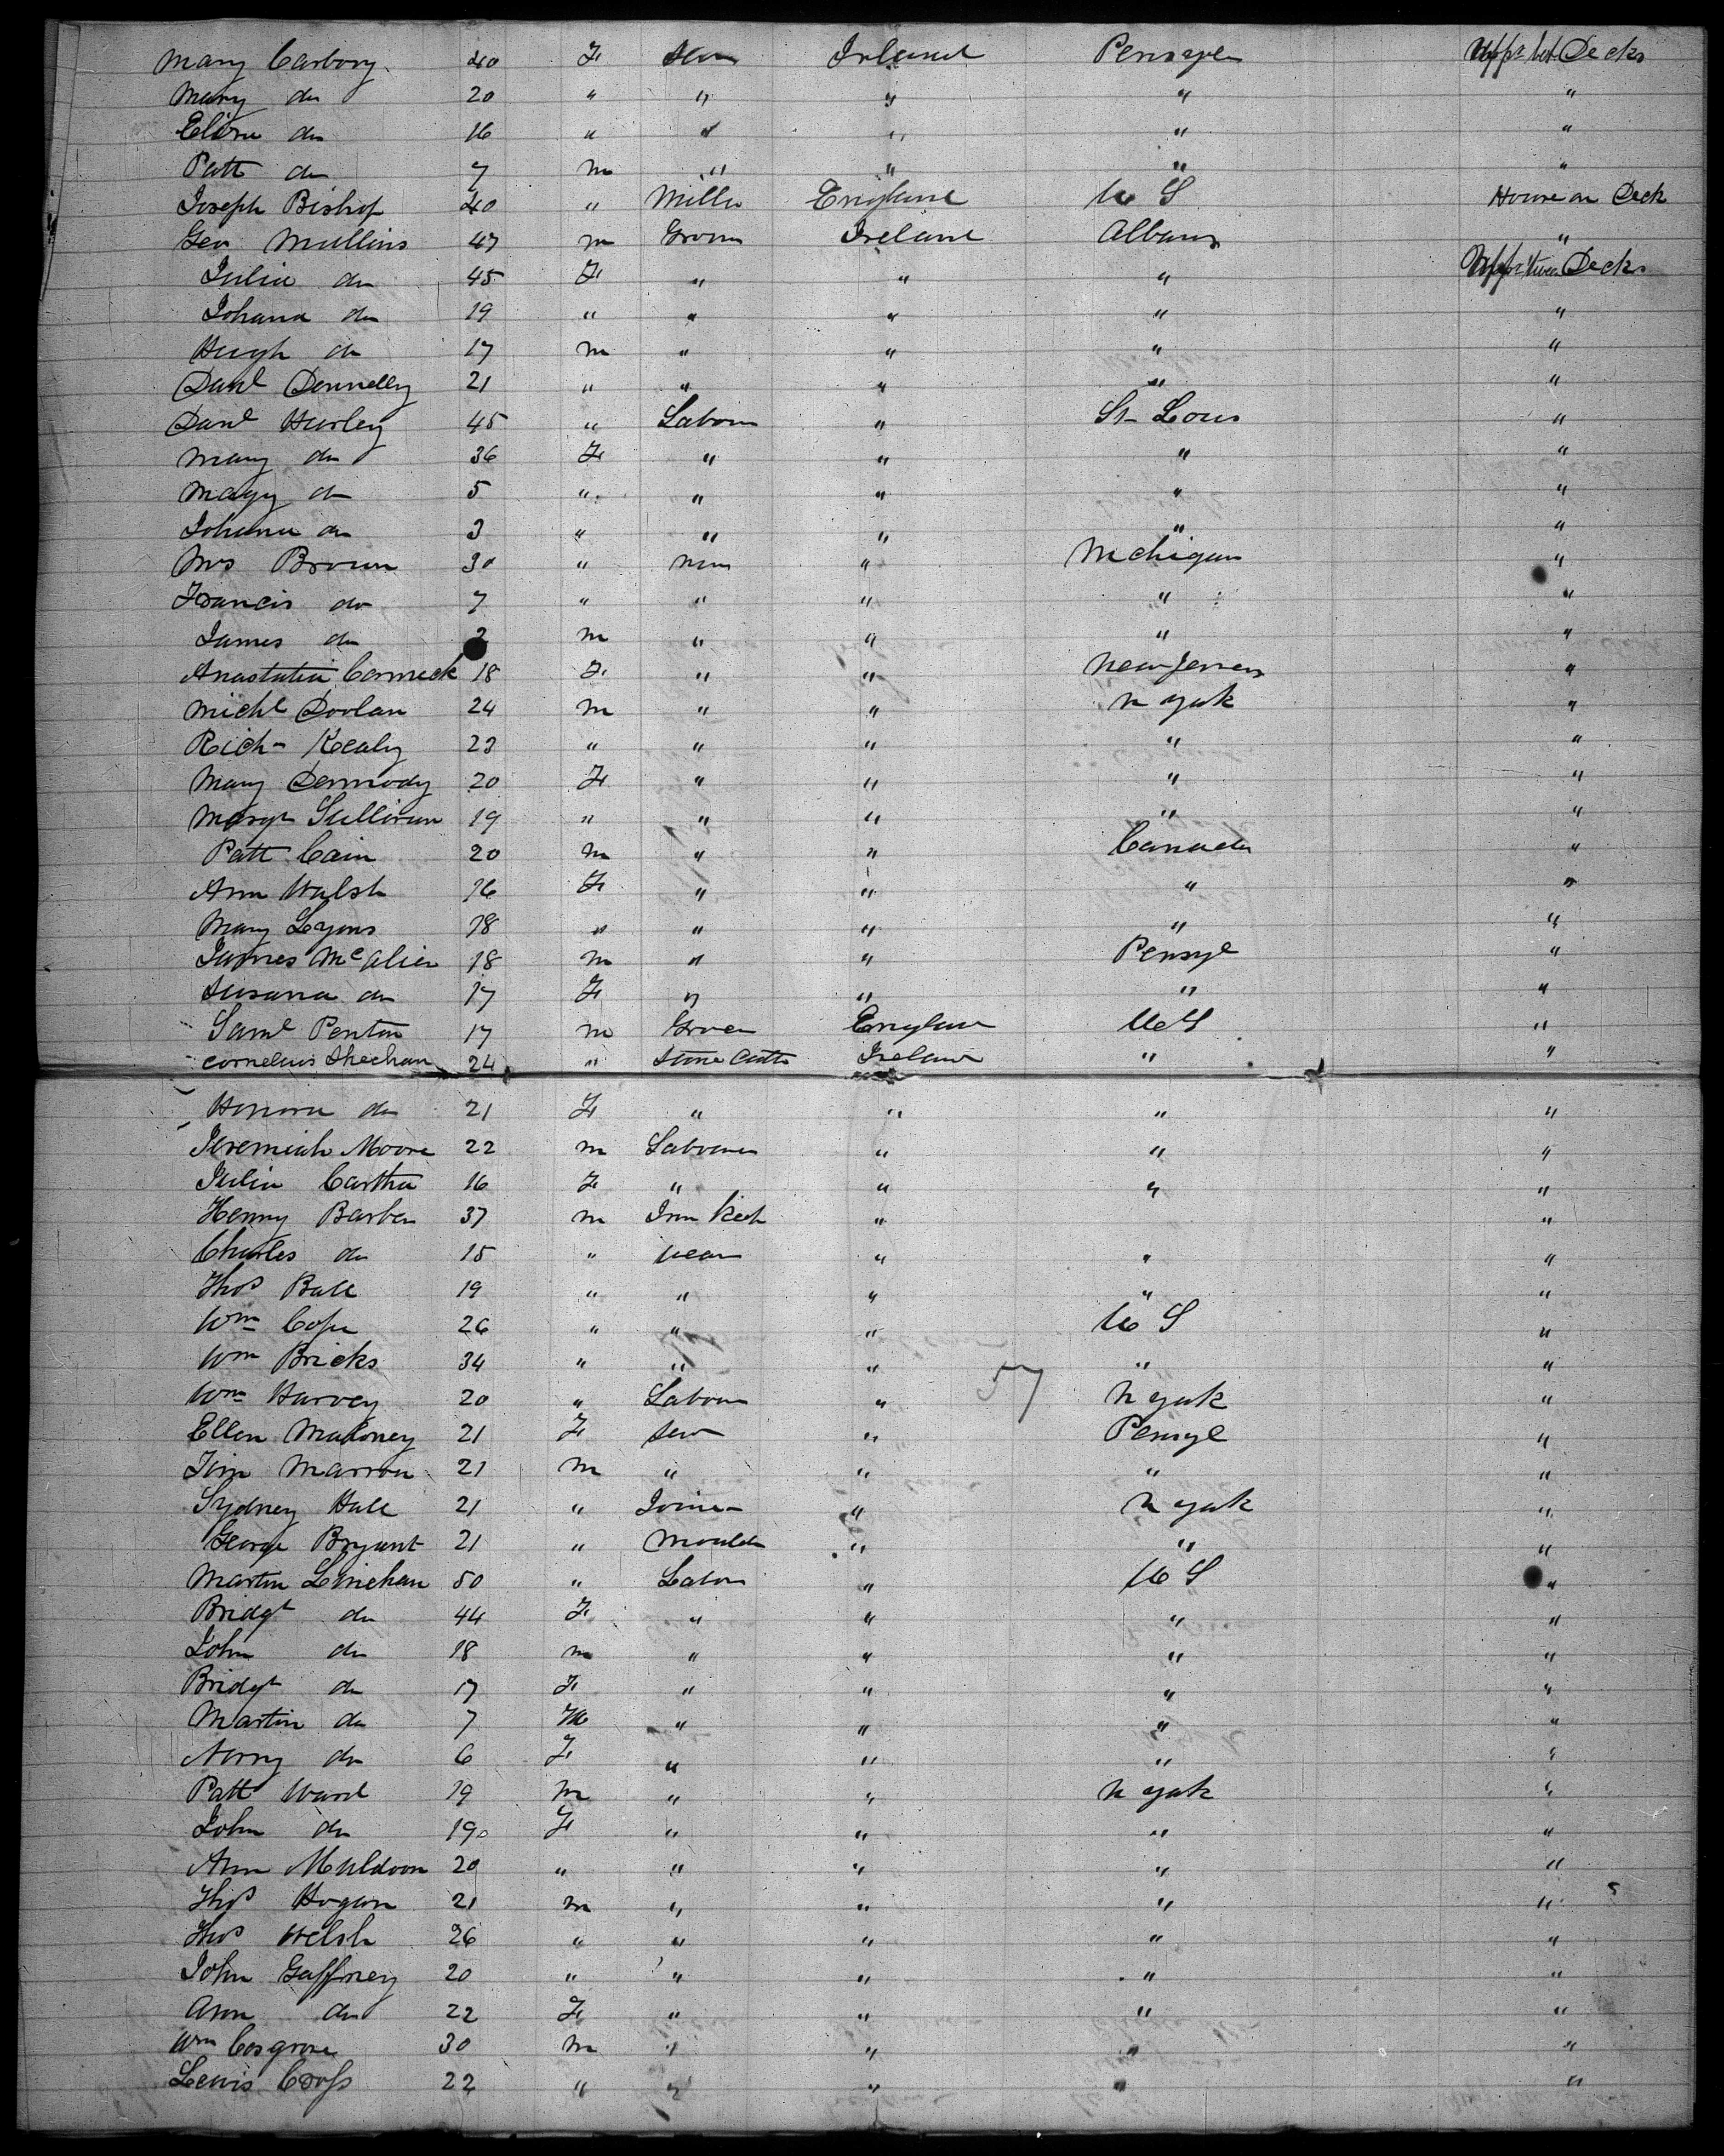 Mary Carbory 40 F Ireland Pensyl Decks
Mary do 20 " " " " "
Eliza do 16 " " " " "
Patt do 7 m " " " "
Joseph Bishop 40 " Miller England U S House on Deck
Geo Mullins 47 m Groom Ireland Albany "
Julia do 45 F " " " Upper 'tween Decks
Johana do 19 " " " " "
Hugh do 17 m " " " "
Danl Donnelly 21 " " " " "
Danl Hurley 45 " Labour " St Louis "
Mary do 36 F " " " "
Magy do 5 " " " " "
Johana do 3 " " " " "
Mrs Brown 30 " " Michigan "
Francis do 7 " " " " "
James do 2 m " " " "
Anastatia Cormick 18 F " " New Jersey "
Michl Doolan 24 m " " N York "
Rich Kealy 23 " " " " "
Mary Dermody 20 F " " " "
Margt Sullivan 19 " " " " "
Patt Cain 20 m " " Canada "
Ann Walsh 16 F " " " "
Mary Lyons 18 " " " " "
James 18 m " " Pensyl "
Susana do 17 F " " " "
Saml Penton 17 m England U S "
Cornelius Sheehan 24 " Stone Cutter Ireland " "
Honora do 21 F " " " "
Jeremiah Moore 22 m Labourer " " "
Julia 16 F " " " "
Henry Barber 37 m Inn Keep " " "
Charles do 15 " " " "
Thos Ball 19 " " " " "
Wm Cope 26 " " " U S "
Wm Bricks 34 " " " " "
57
Wm Harvey 20 " Labour " N York "
Ellen Maloney 21 F " Pensyl "
Jim Marron 21 m " " " "
Sydney Hall 21 " Joiner " N York "
George Bryant 21 " Moulder " " "
Martin Linehan 50 " Labour " U S "
Bridgt do 44 F " " " "
John do 18 m " " " "
Bridgt do 17 F " " " "
Martin do 7 M " " " "
Norry do 6 F " " " "
Patt Ward 19 m " " N York "
John do 19 F " " " "
Ann Muldoon 20 " " " " "
Thos Hogan 21 m " " " "
Thos Welsh 26 " " " " "
John Gaffney 20 " " " " "
Ann do 22 F " " " "
Wm Cosgrove 30 m " " " "
Lewis Cross 22 " " " " "